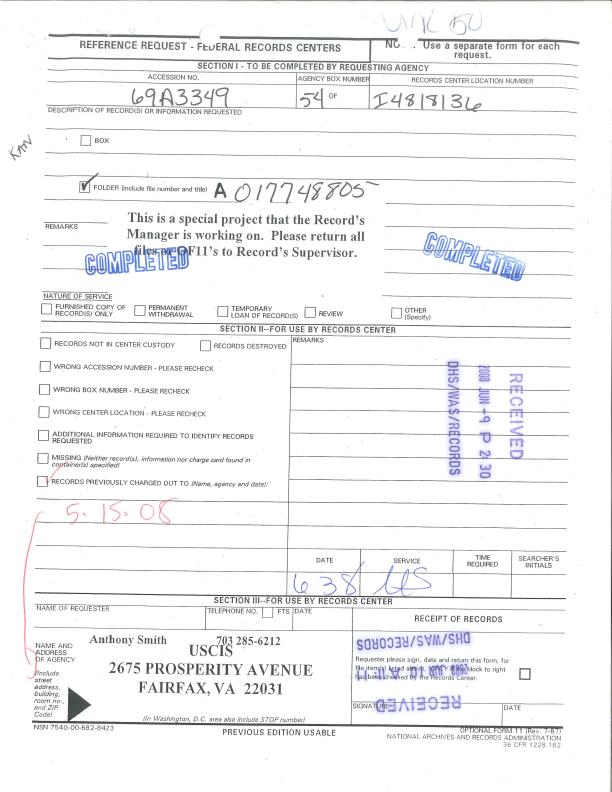 REFERENCE REQUEST - FEDERAL RECORDS CENTERS
Use a separate form for each request.
SECTION I - TO BE COMPLETED BY REQUESTING AGENCY
ACCESSION NO.
69A3349
AGENCY BOX NUMBER
54 OF
RECORDS CENTER LOCATION NUMBER
I4818136
DESCRIPTION OF RECORD(S) OR INFORMATION REQUESTED
KAN
BOX
FOLDER (include file number and title) A 017748805
REMARKS
This is a special project that the Record's
Manager is working on. Please return all
files or OF11's to Record's Supervisor.
COMPLETED
COMPLETED
NATURE OF SERVICE
FURNISHED COPY OF RECORD(S) ONLY
PERMANENT WITHDRAWAL
TEMPORARY LOAN OF RECORD(S)
REVIEW
OTHER (Specify)
SECTION II--FOR USE BY RECORDS CENTER
RECORDS NOT IN CENTER CUSTODY
RECORDS DESTROYED
REMARKS
WRONG ACCESSION NUMBER - PLEASE RECHECK
WRONG BOX NUMBER - PLEASE RECHECK
WRONG CENTER LOCATION - PLEASE RECHECK
ADDITIONAL INFORMATION REQUIRED TO IDENTIFY RECORDS REQUESTED
MISSING (Neither record(s), information nor charge card found in container(s) specified)
RECORDS PREVIOUSLY CHARGED OUT TO (Name, agency and date):
RECEIVED
2008 JUN -9 P 2: 30
DHS/WAS/RECORDS
5. 15. 08
DATE
SERVICE
TIME REQUIRED
SEARCHER'S INITIALS
SECTION III--FOR USE BY RECORDS CENTER
NAME OF REQUESTER
TELEPHONE NO.
FTS
DATE
RECEIPT OF RECORDS
Anthony Smith
703 285-6212
NAME AND ADDRESS OF AGENCY
(Include street address, building, room no., and ZIP Code)
USCIS
2675 PROSPERITY AVENUE
FAIRFAX, VA 22031
(In Washington, D.C. area also include STOP number)
DHS/WAS/RECORDS
Requester please sign, date and return this form, for
file item(s) listed above, ONLY if the block to right
has been checked by the Records Center.
RECEIVED
SIGNATURE
DATE
NSN 7540-00-682-6423
PREVIOUS EDITION USABLE
OPTIONAL FORM 11 (Rev. 7-87)
NATIONAL ARCHIVES AND RECORDS ADMINISTRATION
36 CFR 1228.162